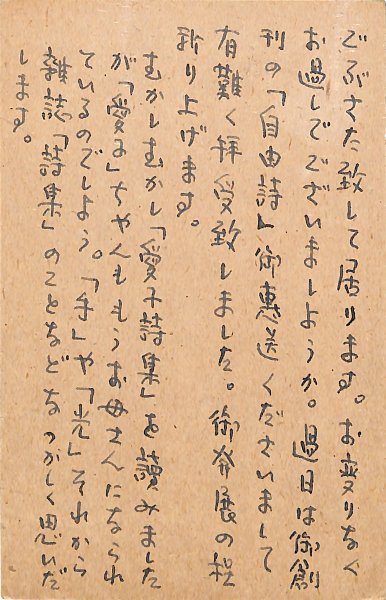 ごぶさた致して居ります。お変りなく
お過しでございましようか。過日は御創
刊の「自由詩」御惠送くださいまして
有難く拝受致しました。御発展の程
祈り上げます。
むかしむかし「愛子詩集」を讀みました
が「愛子」ちやんももうお母さんになられ
ているのでしよう。「手」や「光」それから
雜誌「詩集」のことなどなつかしく思いだ
します。